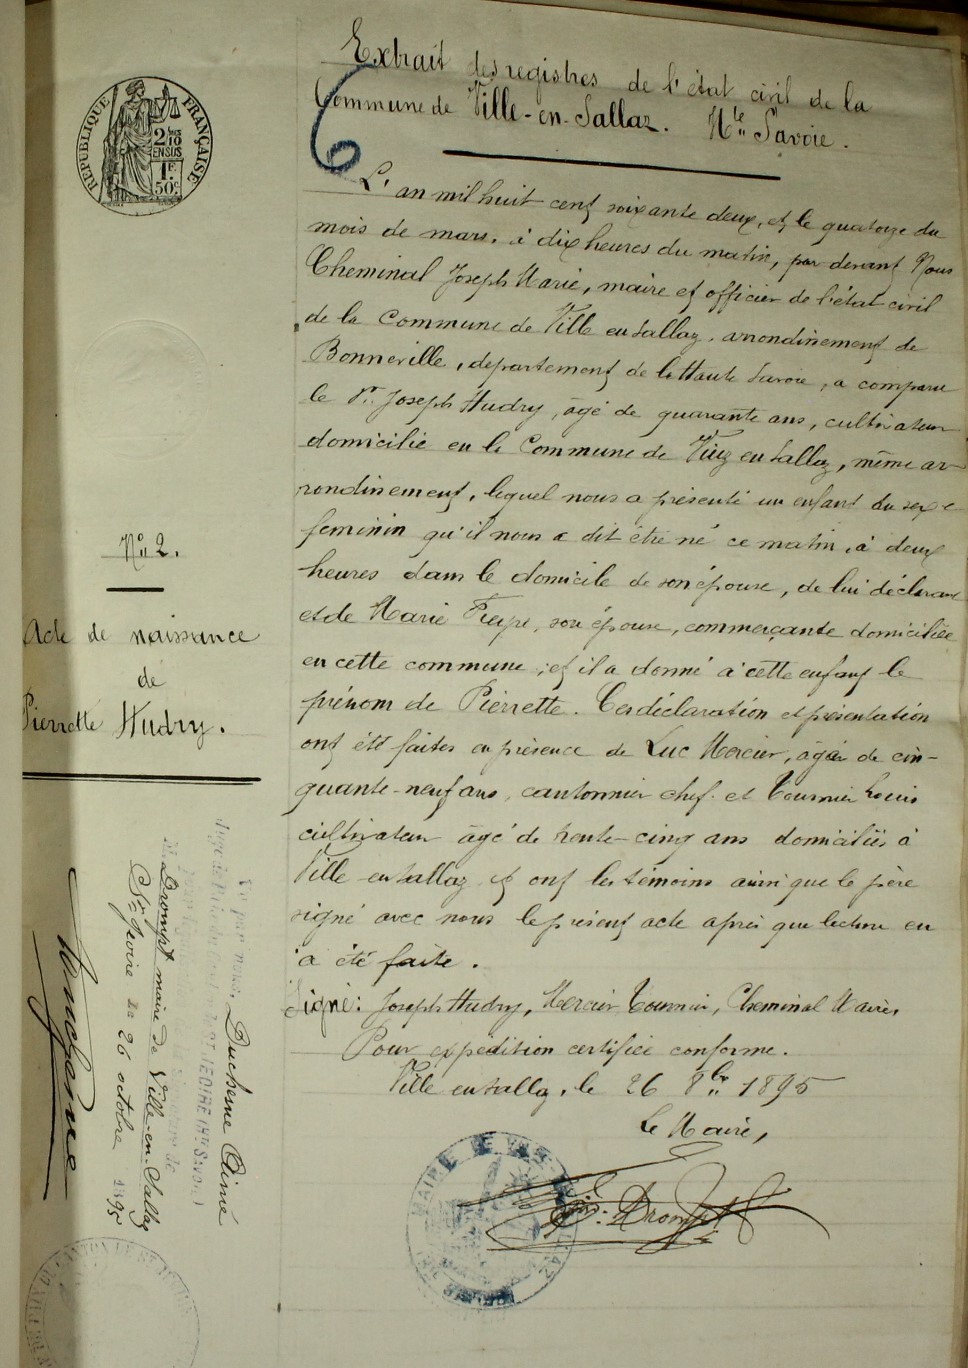 Extrait des registres de l'état civil de la
Commune de Ville-en-Sallaz. Hte Savoie.
RÉPUBLIQUE FRANÇAISE
2/10
EN SUS
1F
50c
L'an mil huit cent soixante deux, et le quatorze du
mois de mars, à dix heures du matin, par devant Nous
Cheminal Joseph Marie, maire et officier de l'état civil
de la Commune de Ville en Sallaz, arrondissement de
Bonneville, département de la Haute Savoie, a comparu
le Sr. Joseph Hudry, âgé de quarante ans, cultivateur
domicilié en la Commune de Viuz en Sallaz, même ar-
rondissement, lequel nous a présenté un enfant du sexe
feminin qu'il nous a dit être né ce matin, à deux
heures dans le domicile de son épouse, de lui déclarant
et de Marie, son épouse, commerçante domiciliée
en cette commune, et il a donné à cette enfant le
prénom de Pierrette. Ces déclaration et présentation
ont été faites en présence de Luc Mercier, âgé de cin-
quante-neuf ans, cantonnier chef et Tournier Louis
cultivateur âgé de trente-cinq ans domiciliés à
Ville en Sallaz et ont les témoins ainsi que le père
signé avec nous le présent acte après que lecture en
a été faite.
Signé: Joseph Hudry, Mercier Tournier, Cheminal Maire,
Pour expédition certifiée conforme.
Ville en Sallaz, le 26 8bre 1895
Le Maire,
Drompt
No 2.
Acte de naissance
de
Pierrette Hudry.
Vu par nous, Duchesne Aimé
Drompt maire de Ville-en-Sallaz
St Jeoire le 26 octobre 1895
Duchesne
MAIRIE DE VILLE-EN-SALLAZ